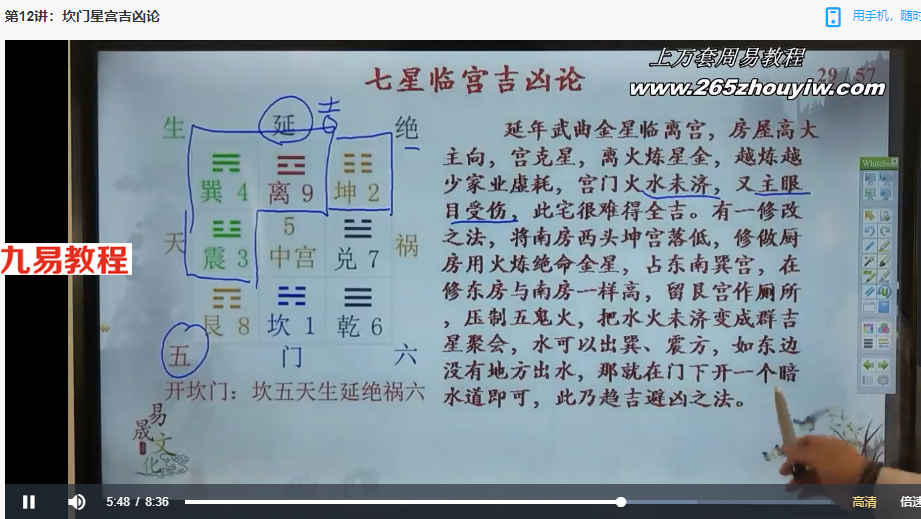 第12讲：坎门星宫吉凶论
用手机，随时
上万套周易教程
29 / 57
www.265zhouyiw.com
七星临宫吉凶论
生 延 吉 绝
巽 4 离 9 坤 2
天 震 3 5 中宫 兑 7 祸
艮 8 坎 1 乾 6
五 门 六
开坎门：坎五天生延绝祸六
延年武曲金星临离宫，房屋高大
主向，宫克星，离火炼星金，越炼越
少家业虚耗，宫门火水未济，又主眼
目受伤，此宅很难得全吉。有一修改
之法，将南房西头坤宫落低，修做厨
房用火炼绝命金星，占东南巽宫，在
修东房与南房一样高，留艮宫作厕所
，压制五鬼火，把水火未济变成群吉
星聚会，水可以出巽、震方，如东边
没有地方出水，那就在门下开一个暗
水道即可，此乃趋吉避凶之法。
九易教程
易晟文化
5:48 / 8:36
高清
倍速